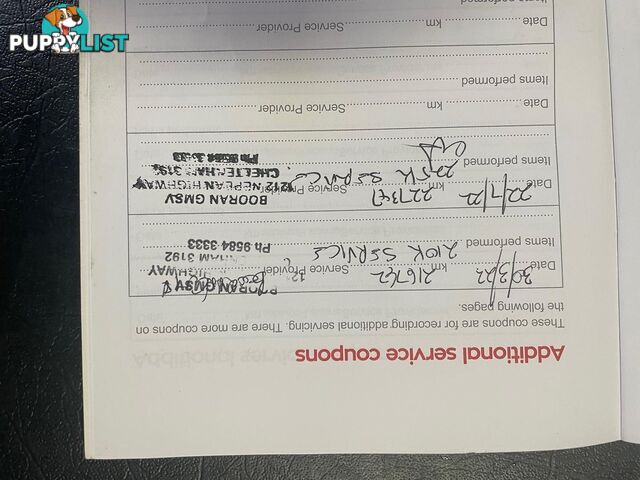 Additional service coupons
These coupons are for recording additional servicing. There are more coupons on
the following pages.
Date 30/3/22 km 216762 Service Provider
Items performed 210K SERVICE
BORAN GMSV
HIGHWAY
HAM 3192
Ph 9584 3333
Date 22/7/22 km 227347 Service Provider
Items performed 225K SERVICE
BOORAN GMSV
1212 NEPEAN HIGHWAY
CHELTENHAM 3192
Ph 9584 3333
Date km Service Provider
Items performed
Date km Service Provider
Items performed
PUPPYLIST